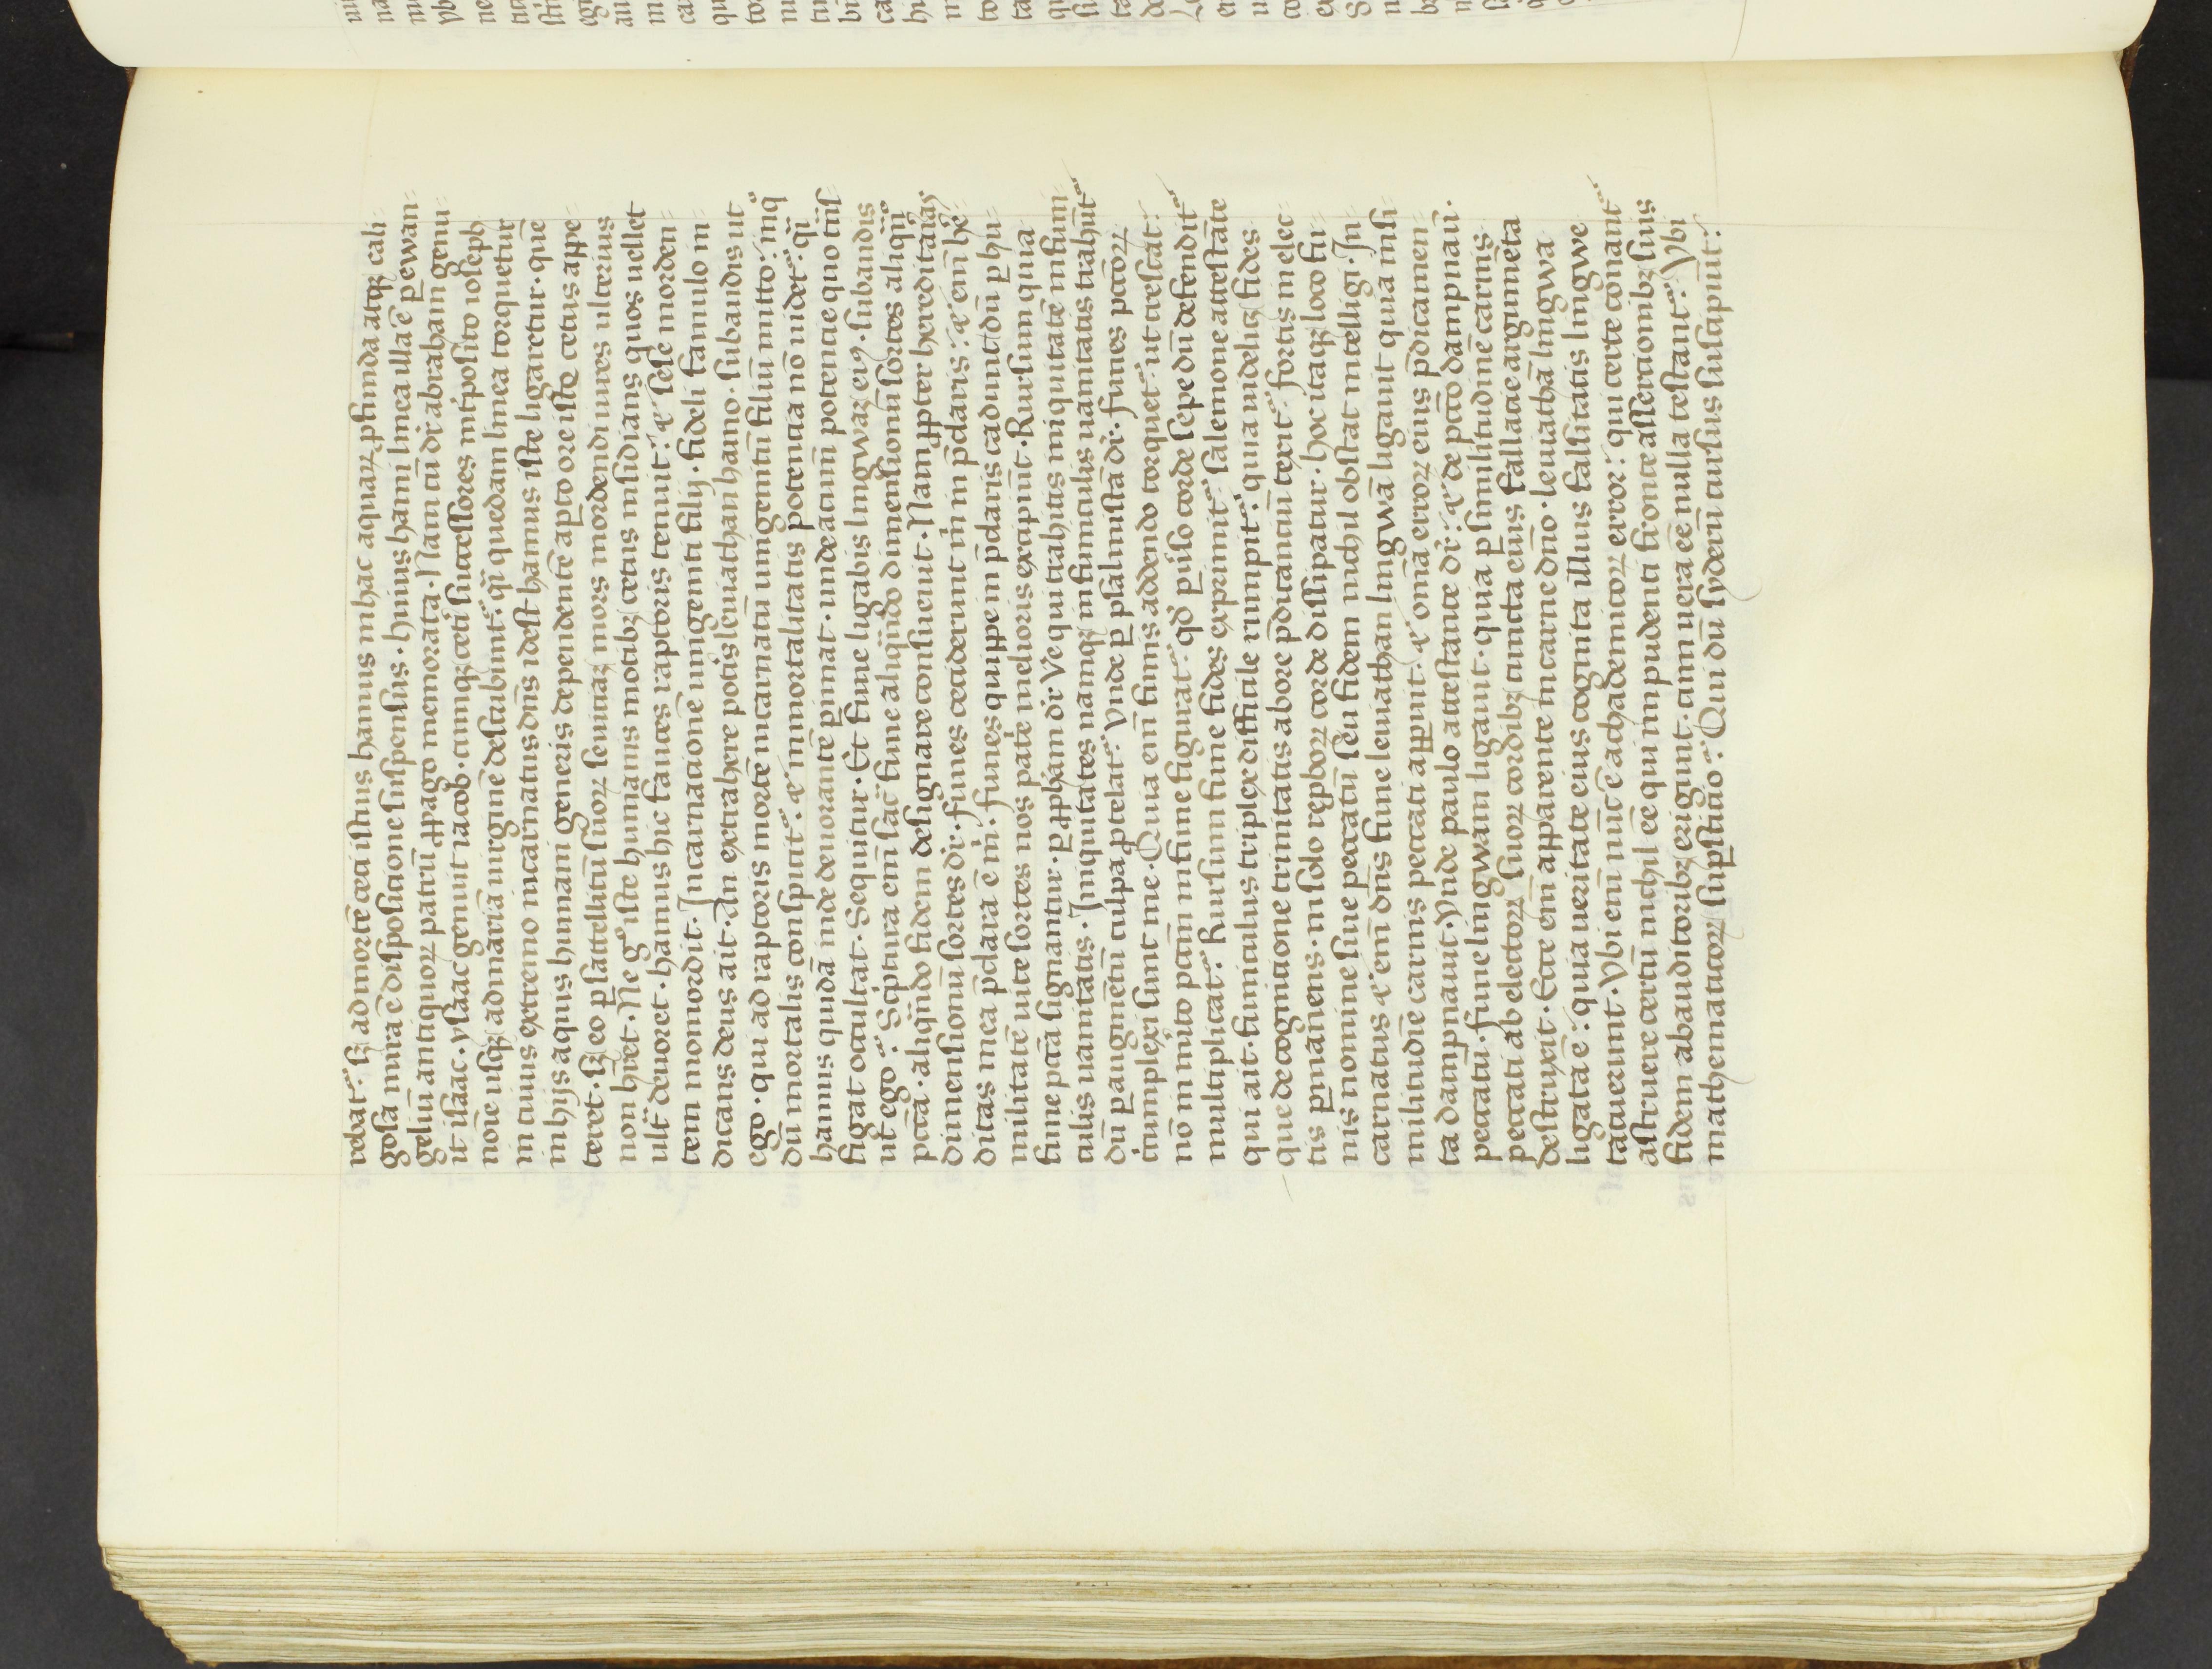 redat. sꝫ ad mortē ceti istius hamus in hac aquaꝝ ꝓfunda atqꝫ cali-
gosa mira ē dispositione suspensus. Huius hami linea illa ē ꝑ ewan-
geliū antiquoꝝ patrū ꝓpago memorata. Nam cū dr̄ abraham genu-
it isaac. ysaac genuit iacob. cūnqꝫ ceti successores int̄posito ioseph
noīe usqꝫ ad mariā uirginē describunt. qͥ quedam linea torquetur
in cuius extremo incarnatus dn̄s id est hamus iste ligaretur. quē
in hijs aquis humani generis dependentē aꝑto ore iste cetus appe-
teret. sꝫ eo ꝑ sattellitū suoꝝ seuitiaꝫ mors mordendi uires ulterius
non hr̄et. Ne gͦ iste humanis motibꝫ cetus insidians quos uellet
ult̄ deuoret. hamus hic fauces raptoris tenuit: ⁊ sese morden-
tem momordit. Incarnationē unigeniti filij. fideli famulo in-
dicans deus ait. An extrahere potis leuiathan hamo. subaudis ut
ego. qui ad raptoris mortē incarnatū unigenitū filiū mitto: inqͦ
dū mortalis conspicit. ⁊ inmortalitatis potentia nō uidet. qͥ
hamus quidā inde deuorantē ꝑimat. unde acum̄ potentie quo t̄ns-
figat occultat. Sequitur. Et fune ligabis lingwaꝫ eiꝰ. subaudis
ut ego: Sc̄ptura em̄ sac̄ fune aliqn̄do dimensionū sortes aliqn̄
pctā. aliqn̄do fidem designare consueuit. Nam ꝓpter hereditarias
dimensionū sortes dr̄. funes ceciderunt m̄ in p̄claris: ⁊ em̄ he-
ditas mea p̄clara ē m̄. funes quippe in p̄claris cadunt dū ꝑ hu-
militatē uite sortes nos pat̄e melioris excipiūt. Rursum quia
fune pctā signantur. ꝑ ꝓph̄am dr̄ Ve qui trahitis iniquitatē in funi-
culis uanitatis. Iniquitates namqꝫ in funiculis uanitatis trahūt
dū ꝑ augmētū culpa ꝓtelat. Vnde ꝑ psalmistā dr̄. funes pctōꝝ
cumplexi sunt me. Quia em̄ funis addendo torquet ut crescat:
nō inm̄ito pctm̄ in fune figurat. qd̄ ꝑuso corde sepe dū defendit
multiplicat. Rursum fune fides exprimit. salemone attestāte
qui ait. funiculus triplex difficile rumpit. quia uidelicꝫ fides
que de cognitione trinitatis ab ore p̄dicantiū texit. fortis in elec-
tis ꝑmanens. in solo reꝓboꝝ corde dissipatur. hoc itaqꝫ loco fu-
nis nomine siue peccatū seu fidem nichil obstat intelligi. In-
carnatus ⁊ em̄ dn̄s fune leuiathan lingwā ligauit quia in si-
militudīe carnis peccati apꝑuit. ⁊ om̄ia erroꝝ eius p̄dicamen-
ta dampnauit. Vnde paulo attestante dr̄: ⁊ de pctō dampnauit.
peccatū. fune lingwam ligauit. quia ꝑ similitudinē carnis
peccati ab electoꝝ suoꝝ cordibꝫ cuncta eius fallacie argumēta
destruxit. Ecce em̄ apparente in carne dn̄o. leuiathā lingwa
ligata ē: quia ueritate eius cognita illius falsitatis lingwe
tacuerunt. Vbi em̄ nūc ē achademicoꝝ error: qui certe conant
astruere certū nichil ēe qui impudenti fronte assertionibꝫ suis
fidem ab auditoribꝫ exigunt. cum uera ēe nulla testant: Vbi
mathematicoꝝ suꝑstitio: Qui dū syderū cursus suscipiūt: